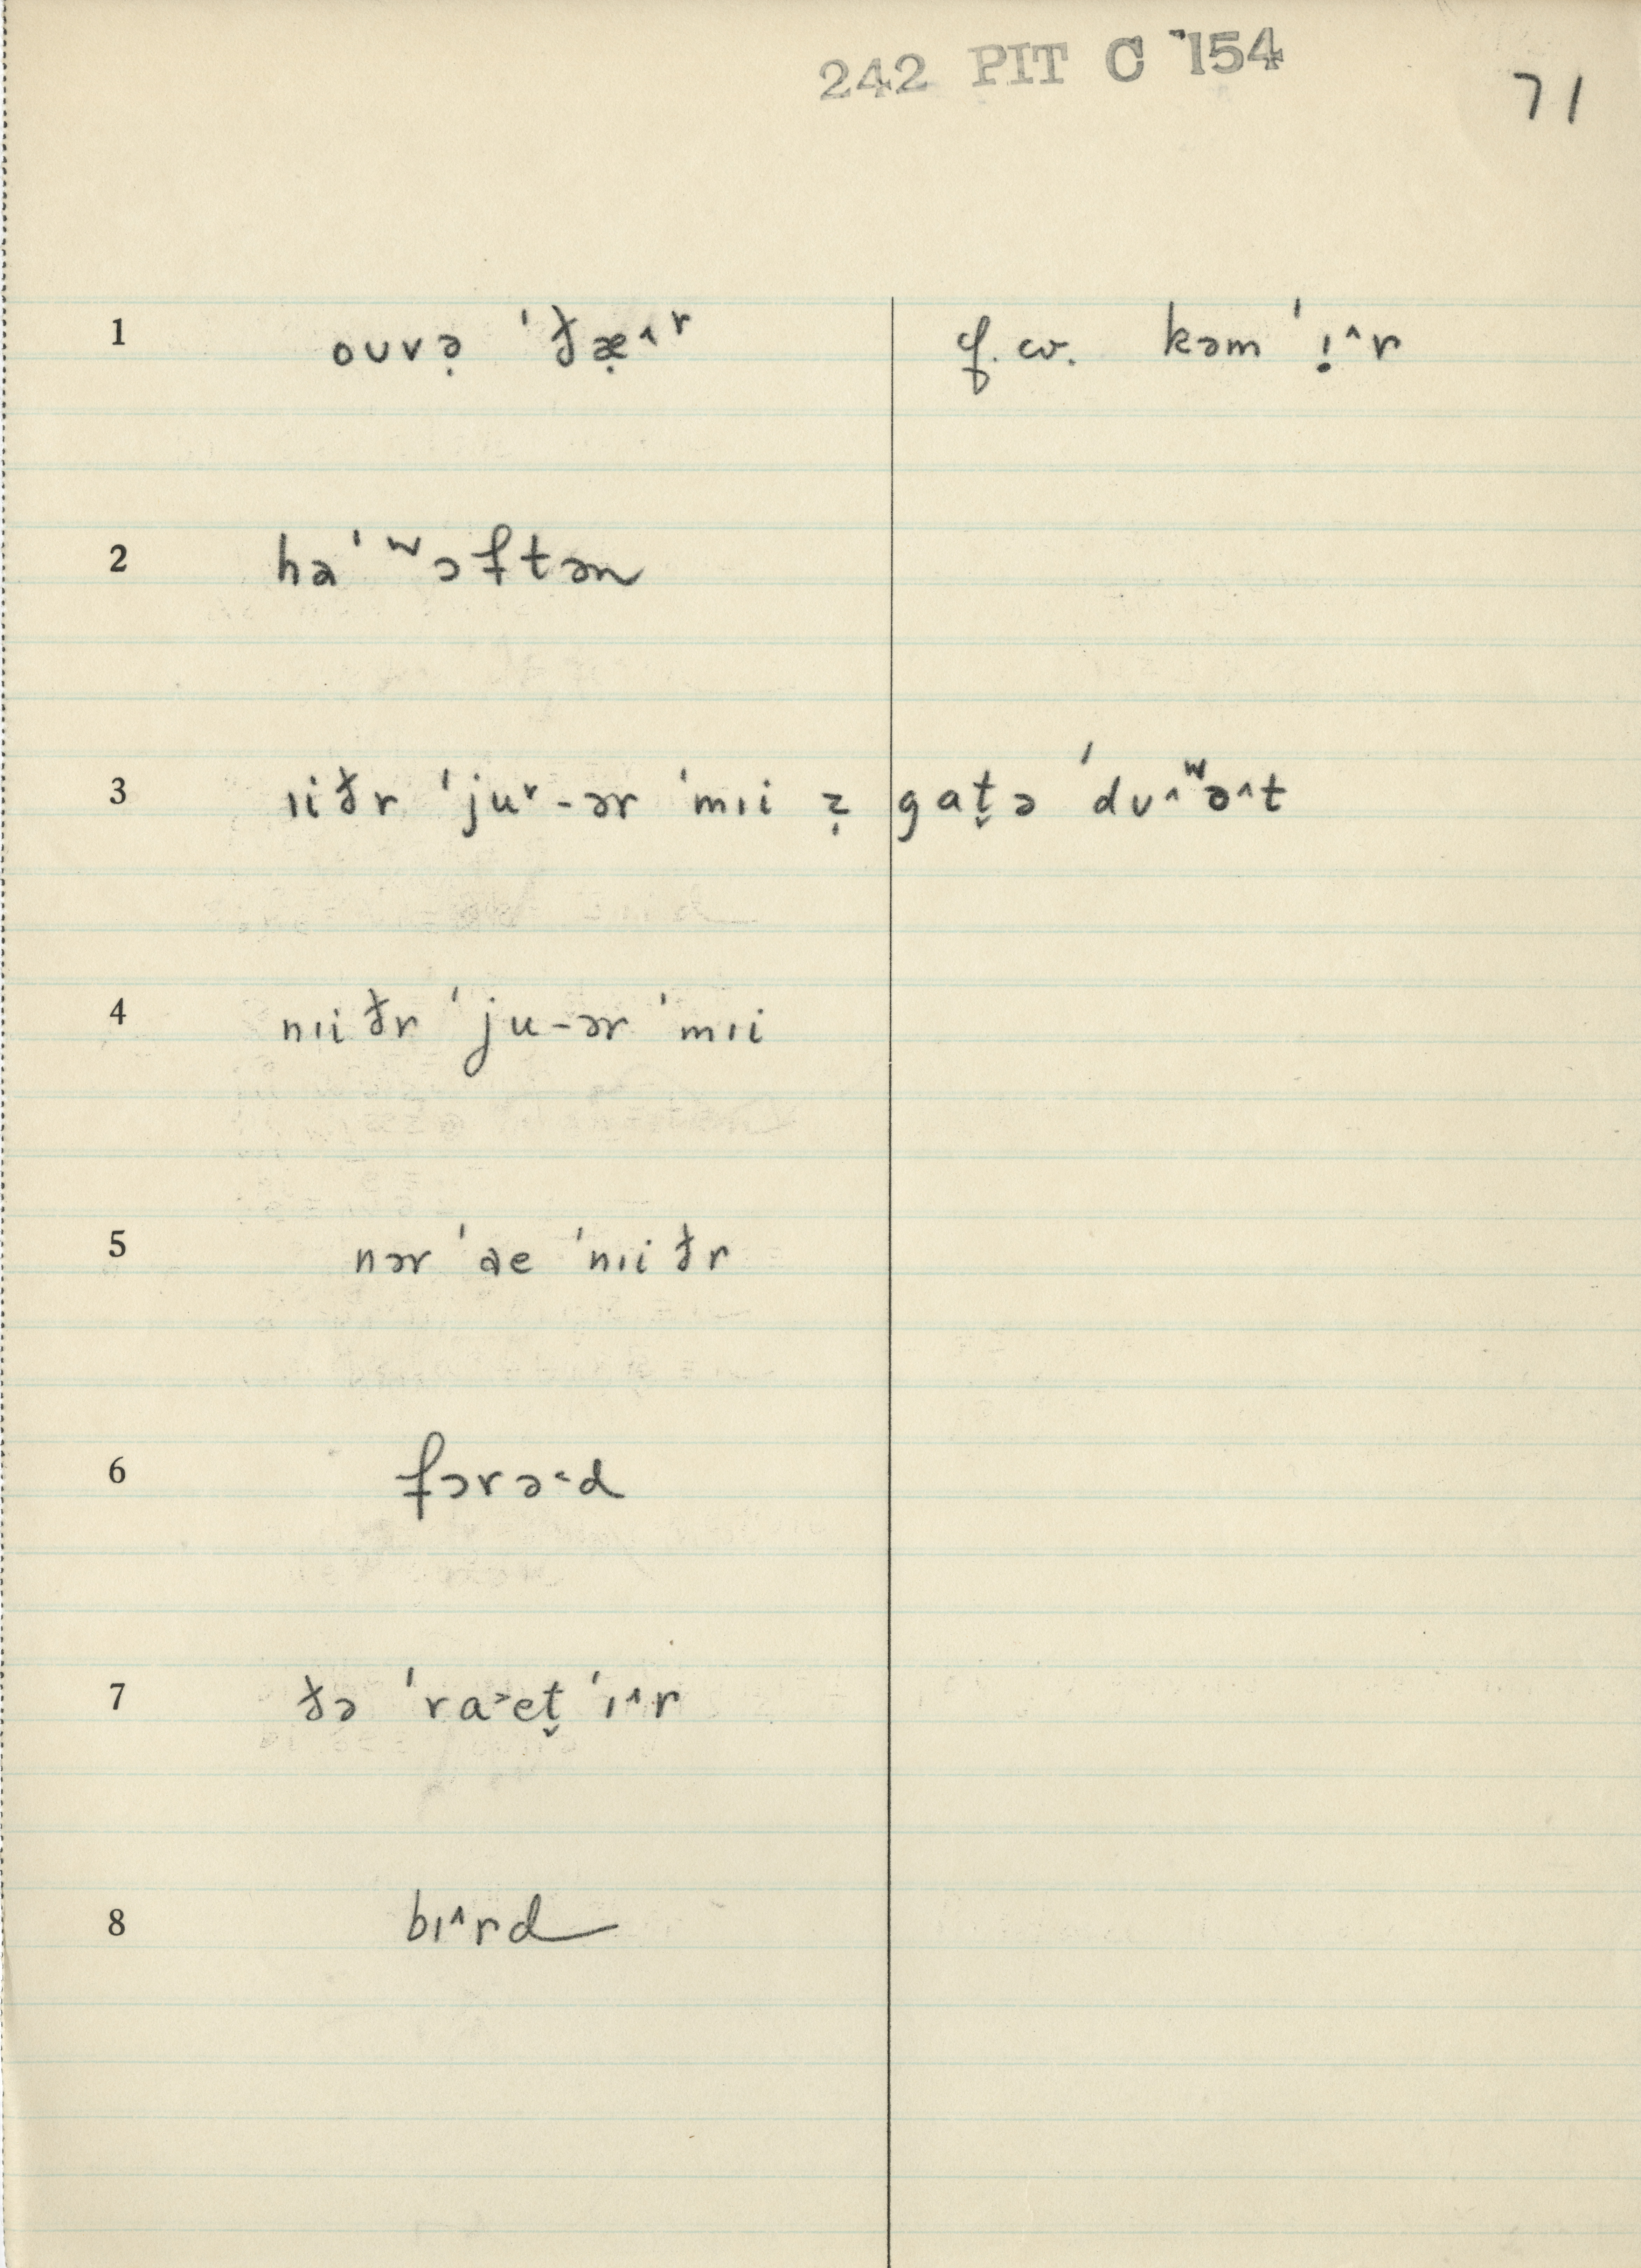 242 PIT C 154
71
1 oʊvə̣ ˈðæ̣˄ʳ f.w. kəm ˈɪ̣˄r
2 hə ˈʷɔftən
3 ɪiðr ˈjuʳ-ər ˈmɪi ẓ gat̬ə ˈdʊ˄ʷə˄t
4 nɪiðr ˈju-ər ˈmɪi
5 nər ˈae ˈnɪiðr
6 fərə˂d
7 ðə ˈra˃et̬ ˈɪ˄r
8 bɪ˄rd